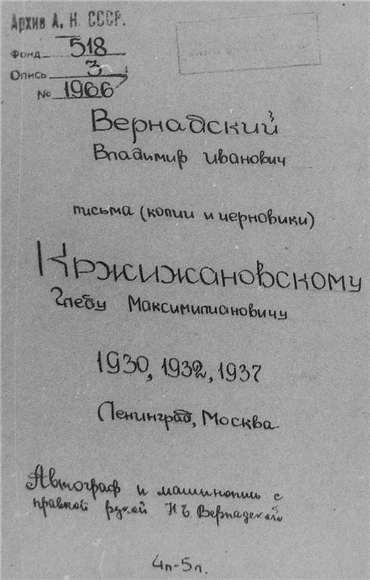 Архив А. Н. СССР.
Фонд 518
Опись 3
№ 1966
Вернадский
Владимир Иванович
письма (копии и черновики)
Кржижановскому
Глебу Максимилиановичу
1930, 1932, 1937
Ленинград, Москва
Автограф и машинопись с
правкой рукой Вернадского
4п-5п.